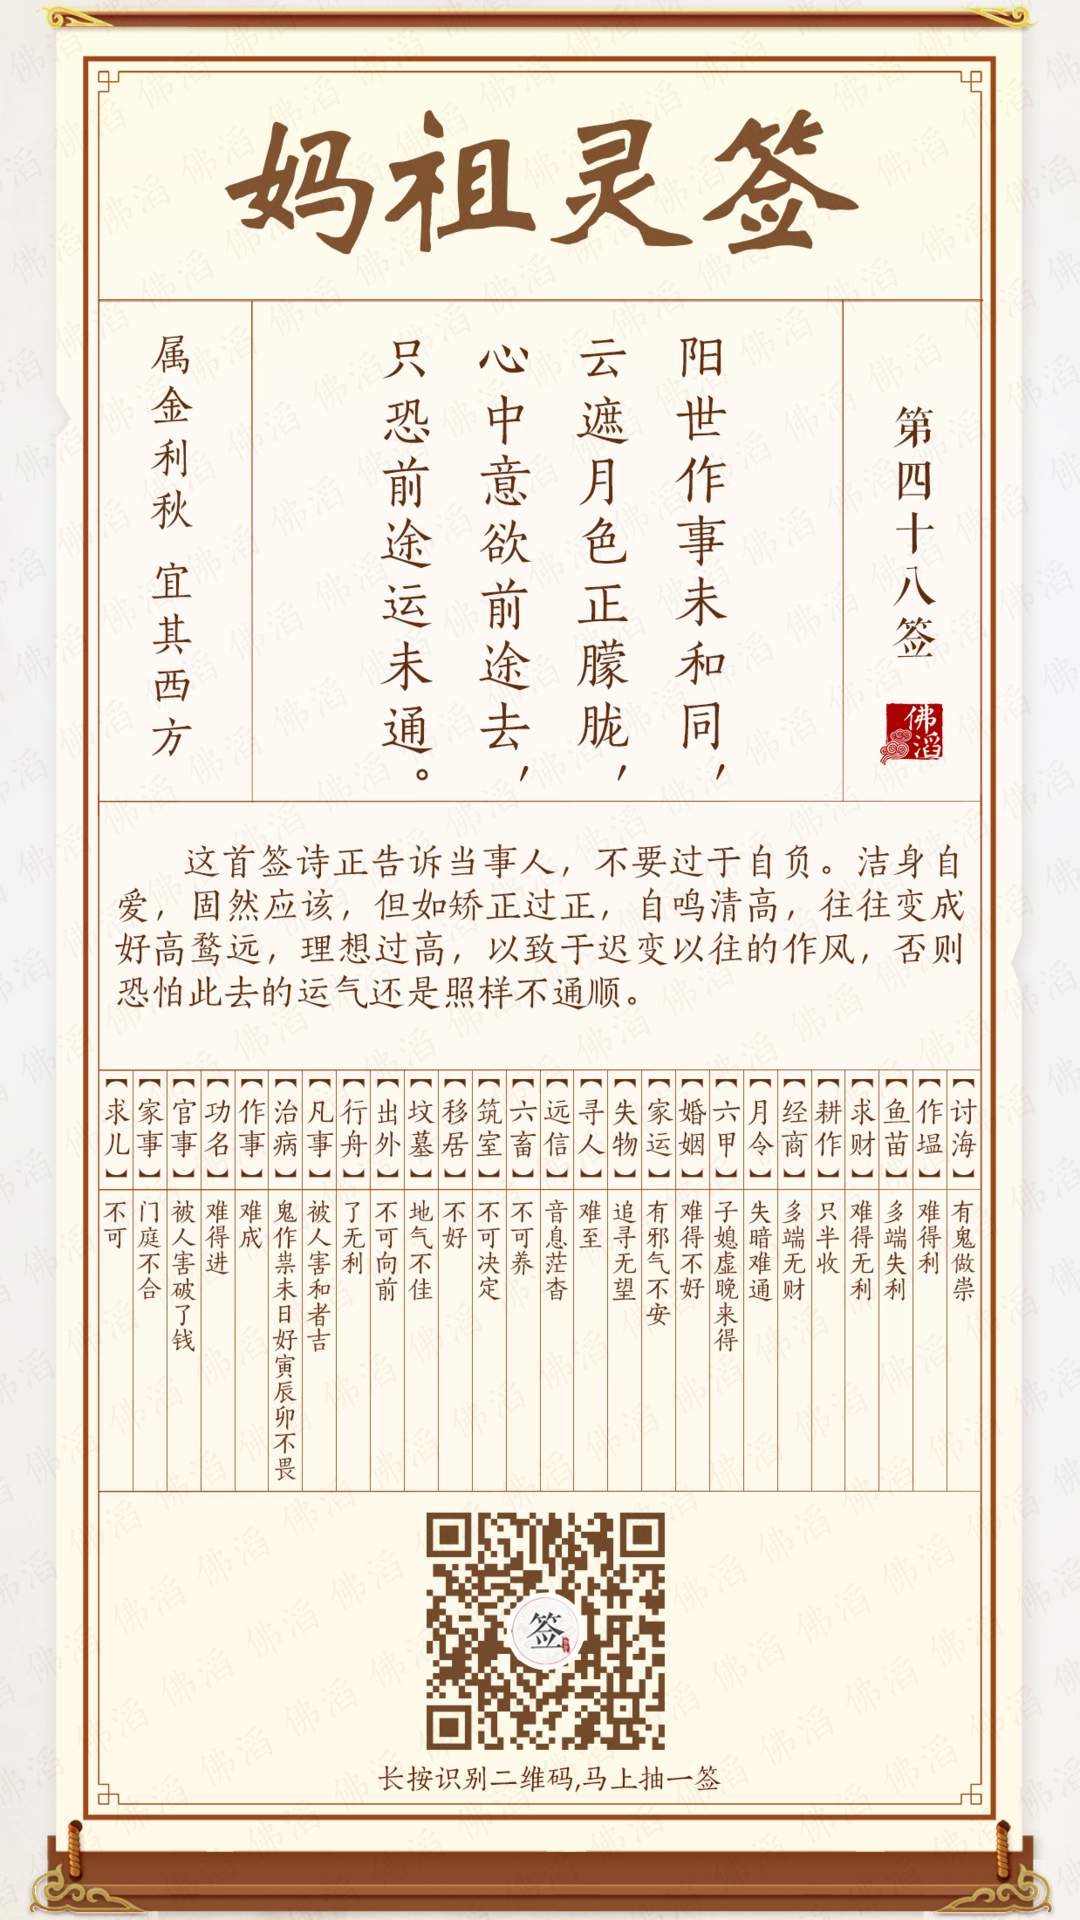 妈祖灵签
第四十八签
佛滔
阳世作事未和同，
云遮月色正朦胧，
心中意欲前途去，
只恐前途运未通。
属金利秋 宜其西方
这首签诗正告诉当事人，不要过于自负。洁身自
爱，固然应该，但如矫正过正，自鸣清高，往往变成
好高鹜远，理想过高，以致于迟变以往的作风，否则
恐怕此去的运气还是照样不通顺。
【讨海】有鬼做崇
【作塭】难得利
【鱼苗】多端失利
【求财】难得无利
【耕作】只半收
【经商】多端无财
【月令】失暗难通
【六甲】子媳虚晚来得
【婚姻】难得不好
【家运】有邪气不安
【失物】追寻无望
【寻人】难至
【远信】音息茫杳
【六畜】不可养
【筑室】不可决定
【移居】不好
【坟墓】地气不佳
【出外】不可向前
【行舟】了无利
【凡事】被人害和者吉
【治病】鬼作祟未日好寅辰卯不畏
【作事】难成
【功名】难得进
【官事】被人害破了钱
【家事】门庭不合
【求儿】不可
签
长按识别二维码,马上抽一签